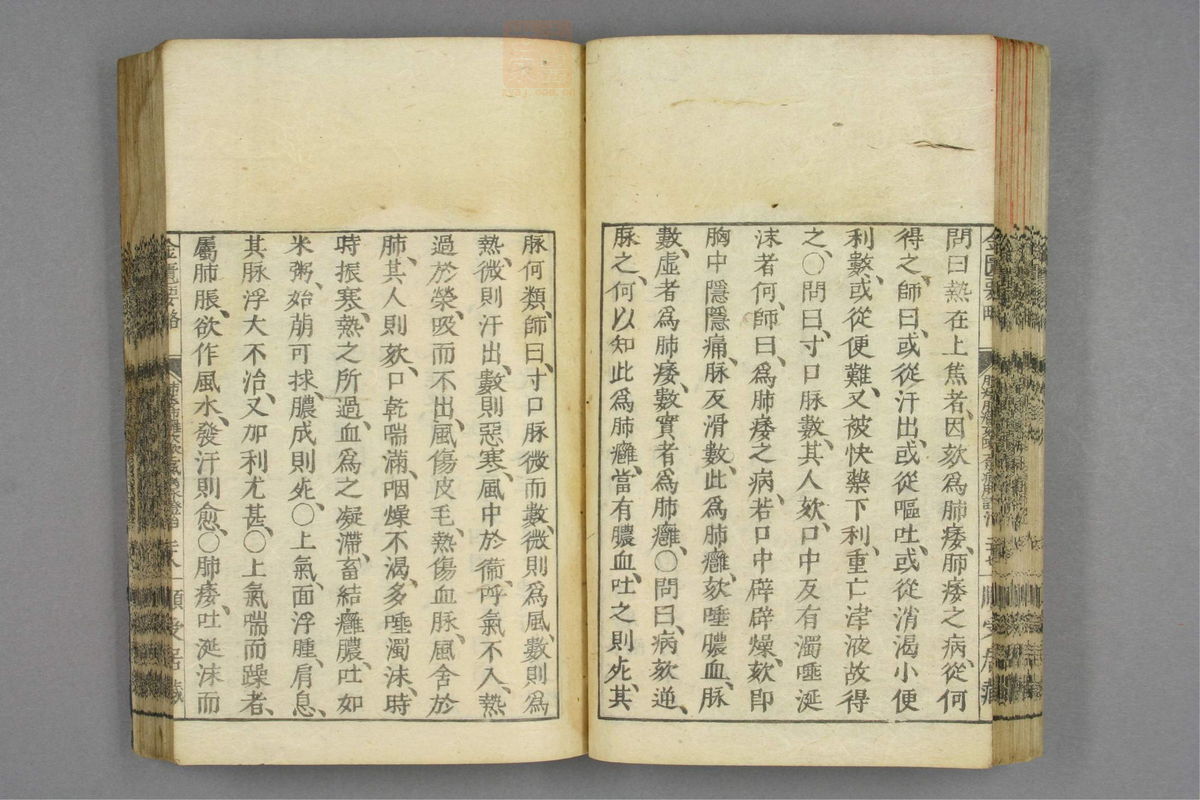 問曰熱在上焦者、因欬爲肺痿、肺痿之病、從何
得之、師曰、或從汗出、或從嘔吐、或從消渴小便
利數、或從便難、又被快藥下利、重亡津液故得
之、〇問曰、寸口脉數、其人欬、口中反有濁唾涎
沫者何、師曰、爲肺痿之病、若口中辟辟燥、欬卽
胸中隱隱痛、脉反滑數、此爲肺癰、欬唾膿血、脉
數、虛者爲肺痿、數實者爲肺癰、〇問曰、病欬逆、
脉之、何以知此爲肺癰、當有膿血、吐之則死、其
脉何類、師曰、寸口脉微而數、微則爲風、數則爲
熱、微則汗出、數則惡寒、風中於衞、呼氣不入、熱
過於榮、吸而不出、風傷皮毛、熱傷血脉、風舍於
肺、其人則欬、口乾喘滿、咽燥不渴、多唾濁沫、時
時振寒、熱之所過、血爲之凝滯、畜結癰膿、吐如
米粥、始萠可救、膿成則死、〇上氣、面浮腫、肩息、
其脉浮大不治、又加利尤甚、〇上氣喘而躁者、
屬肺脹、欲作風水、發汗則愈、〇肺痿、吐涎沫而
金匱要略
二十八